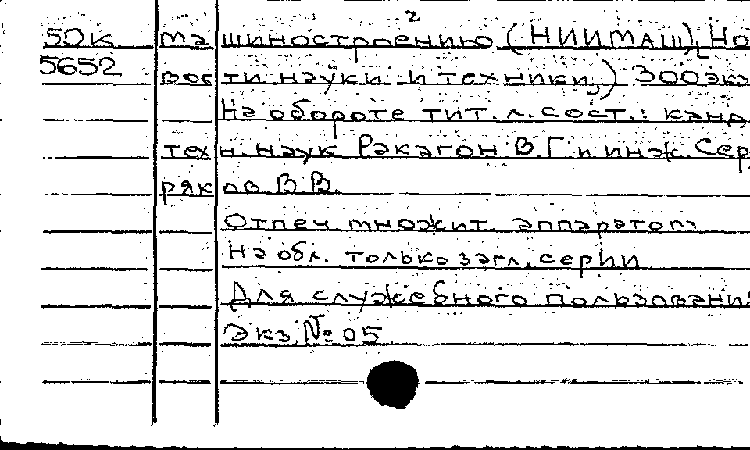 50к машиностроению (НИИМАШ), Но
5652 вости науки и техники,) 300экз
На обороте тит. л. сост.: канд.
техн. наук Ракагон В.Г и инж. Сер
ряков В.В.
Отпеч множит. аппаратом
На обл. только загл. серии
Для служебного пользования
Экз. № 05